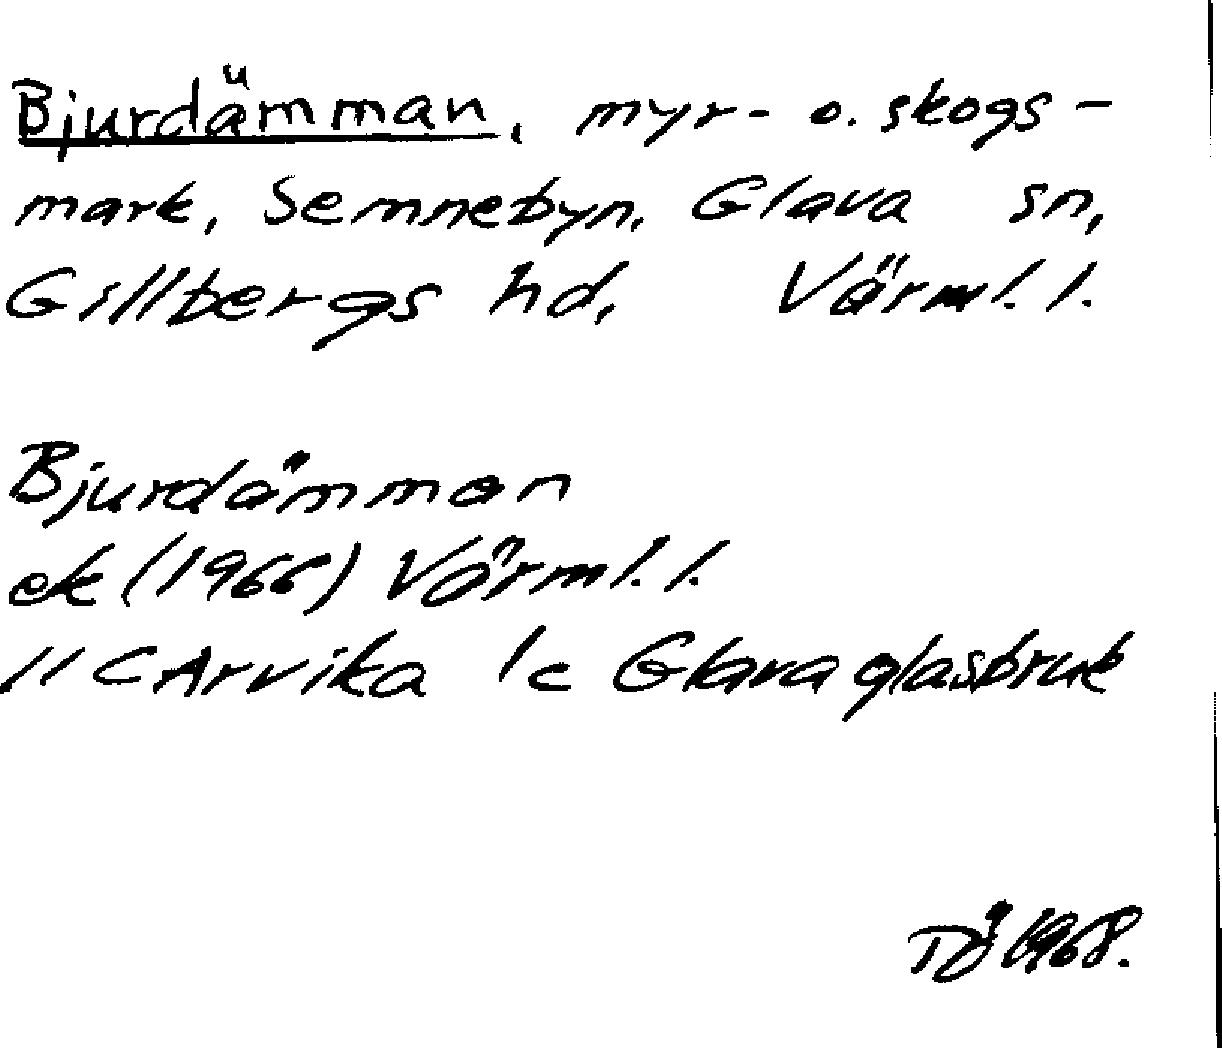 Bjurdämman, myr- o. skogs-
mark, Semnebyn, Glava sn,
Gillbergs hd, Värml. l.
Bjurdämman
ek (1966) Värml. l.
11 C Arvika 1c Glava glasbruk
TÖ 1968.